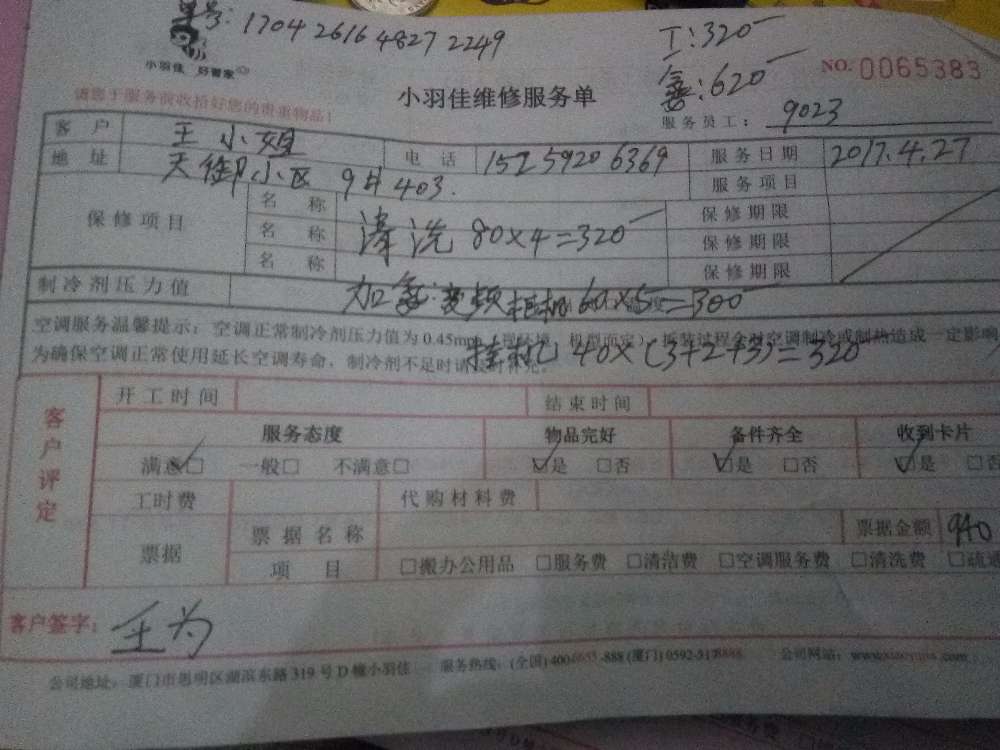 单号: 1704 2616 4827 2249
工:320
氟:620
小羽佳 好管家
NO. 0065383
请您于服务前收拾好您的贵重物品!
小羽佳维修服务单
服务员工: 9023
客户 王小姐 电话 15259206369 服务日期 2017.4.27
地址 天御小区 9# 403. 服务项目
保修项目 名称 保修期限
名称 清洗 80×4=320 保修期限
名称 保修期限
制冷剂压力值 加氟:变频柜机 60×5=300
空调服务温馨提示:空调正常制冷剂压力值为0.45mpa(视环境、机型而定),拆装过程会对空调制冷或制热造成一定影响
为确保空调正常使用延长空调寿命,制冷剂不足时请及时补充。
挂机 40×(3+2+3)=320
客户评定
开工时间 结束时间
服务态度 物品完好 备件齐全 收到卡片
满意☑ 一般□ 不满意□ ☑是 □否 ☑是 □否 ☑是 □否
工时费 代购材料费
票据 票据名称 票据金额 940
项目 □搬办公用品 □服务费 □清洁费 □空调服务费 □清洗费
客户签字: 王为
公司地址:厦门市思明区湖滨东路319号D幢小羽佳 服务热线:(全国)400 -888 (厦门)0592- 公司网站: